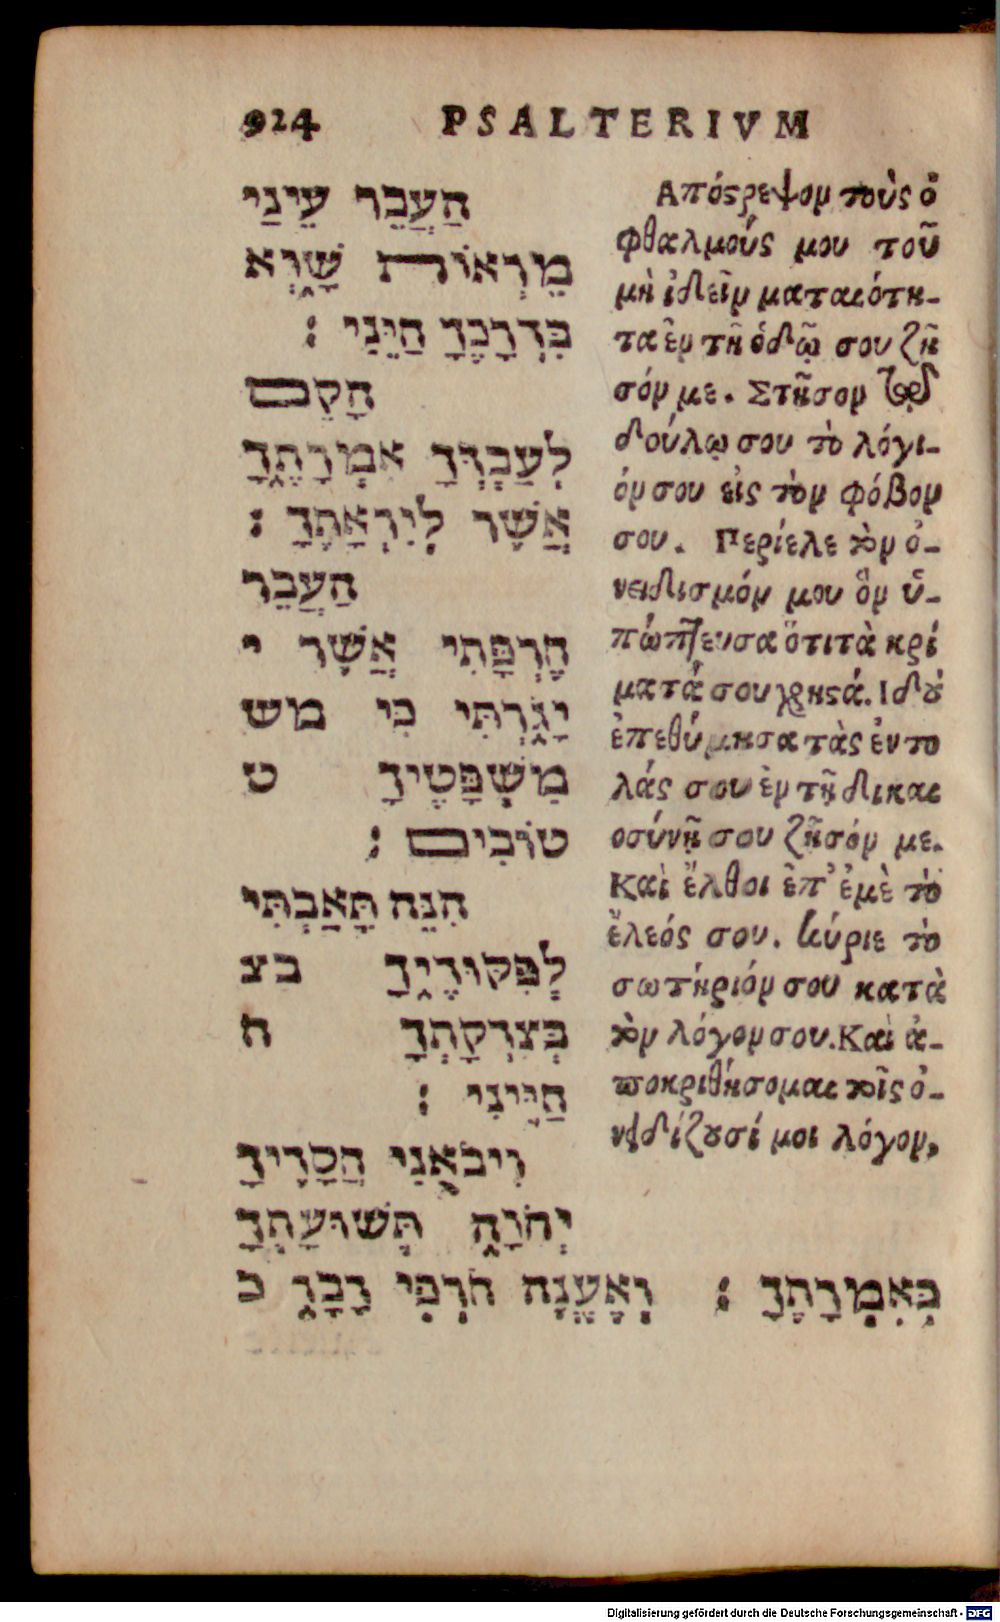 924 PSALTERIVM
הַעֲבֵר עֵינַי
מֵרְאוֹת שָׁוְא
בִּדְרָכֶךָ חַיֵּנִי :
הָקֵם
לְעַבְדְּךָ אִמְרָתֶךָ
אֲשֶׁר לְיִרְאָתֶךָ :
הַעֲבֵר
חֶרְפָּתִי אֲשֶׁר י
יָגֹרְתִּי כִּי מש
מִשְׁפָּטֶיךָ ט
טוֹבִים :
הִנֵּה תָּאַבְתִּי
לְפִקּוּדֶיךָ בצ
בְּצִדְקָתְךָ ח
חַיֵּינִי :
וִיבֹאֻנִי חֲסָדֶיךָ
יְהֹוָה תְּשׁוּעָתְךָ
כְּאִמְרָתֶךָ : וְאֶעֱנֶה חֹרְפִי דָבָר כ
Απόςρεψον τοὺς ὀ
φθαλμούς μου τοῦ
μὴ ἰδεῖν ματαιότη-
τα ἐν τῇ ὁδῷ σου ζῆ
σόν με. Στῆσον τῷ
δούλῳ σου τὸ λόγι-
όν σου εἰς τὸν φόβον
σου. Περίελε τὸν ὀ-
νειδισμόν μου ὃν ὑ-
πώπτευσα ὅτι τὰ κρί
ματά σου χρηςά. Ιδοὺ
ἐπεθύμησα τὰς ἐντο
λάς σου ἐν τῇ δικαι
οσύνῃ σου ζῆσόν με.
Καὶ ἔλθοι ἐπ' ἐμὲ τὸ
ἔλεός σου. κύριε τὸ
σωτήριόν σου κατὰ
τὸν λόγον σου. Καὶ ἀ-
ποκριθήσομαι τοῖς ὀ-
νειδίζουσί μοι λόγον,
Digitalisierung gefördert durch die Deutsche Forschungsgemeinschaft - DFG